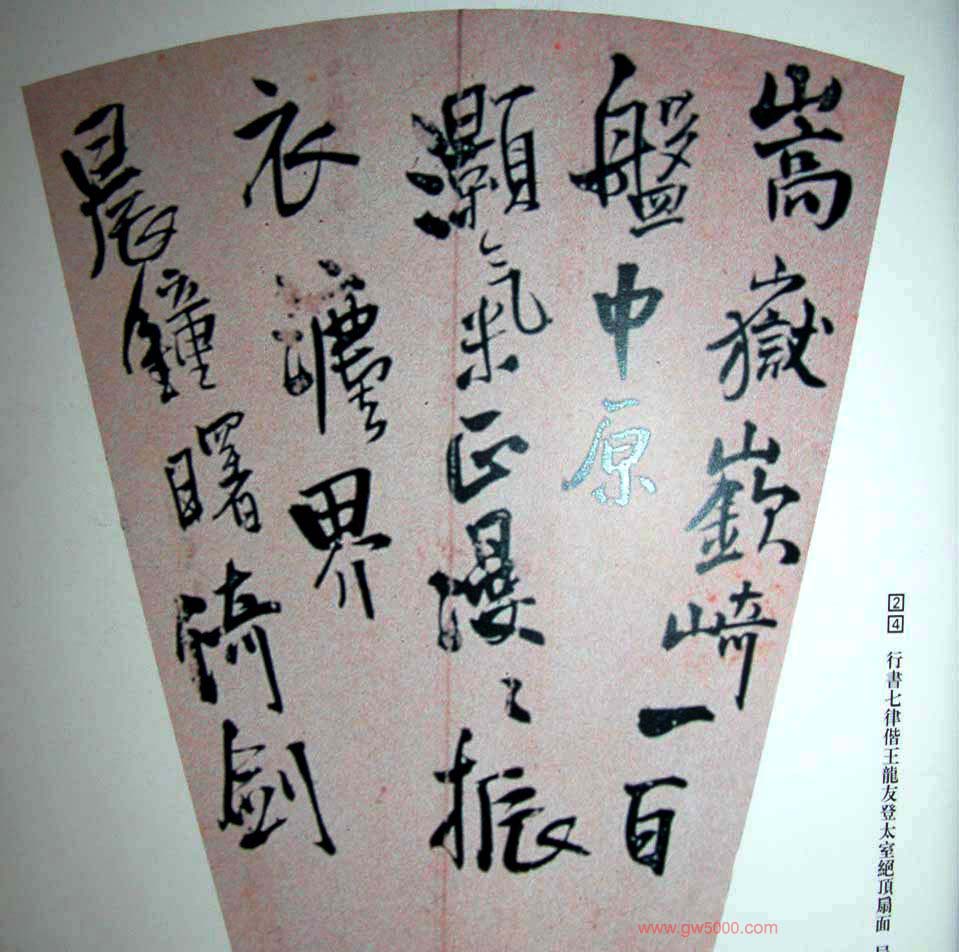 嵩嶽嶔崎一百
盤中原
灝氣正漫〻振
衣界
晨鐘曙倚劍
24 行書七律偕王龍友登太室絕頂扇面
www.gw5000.com